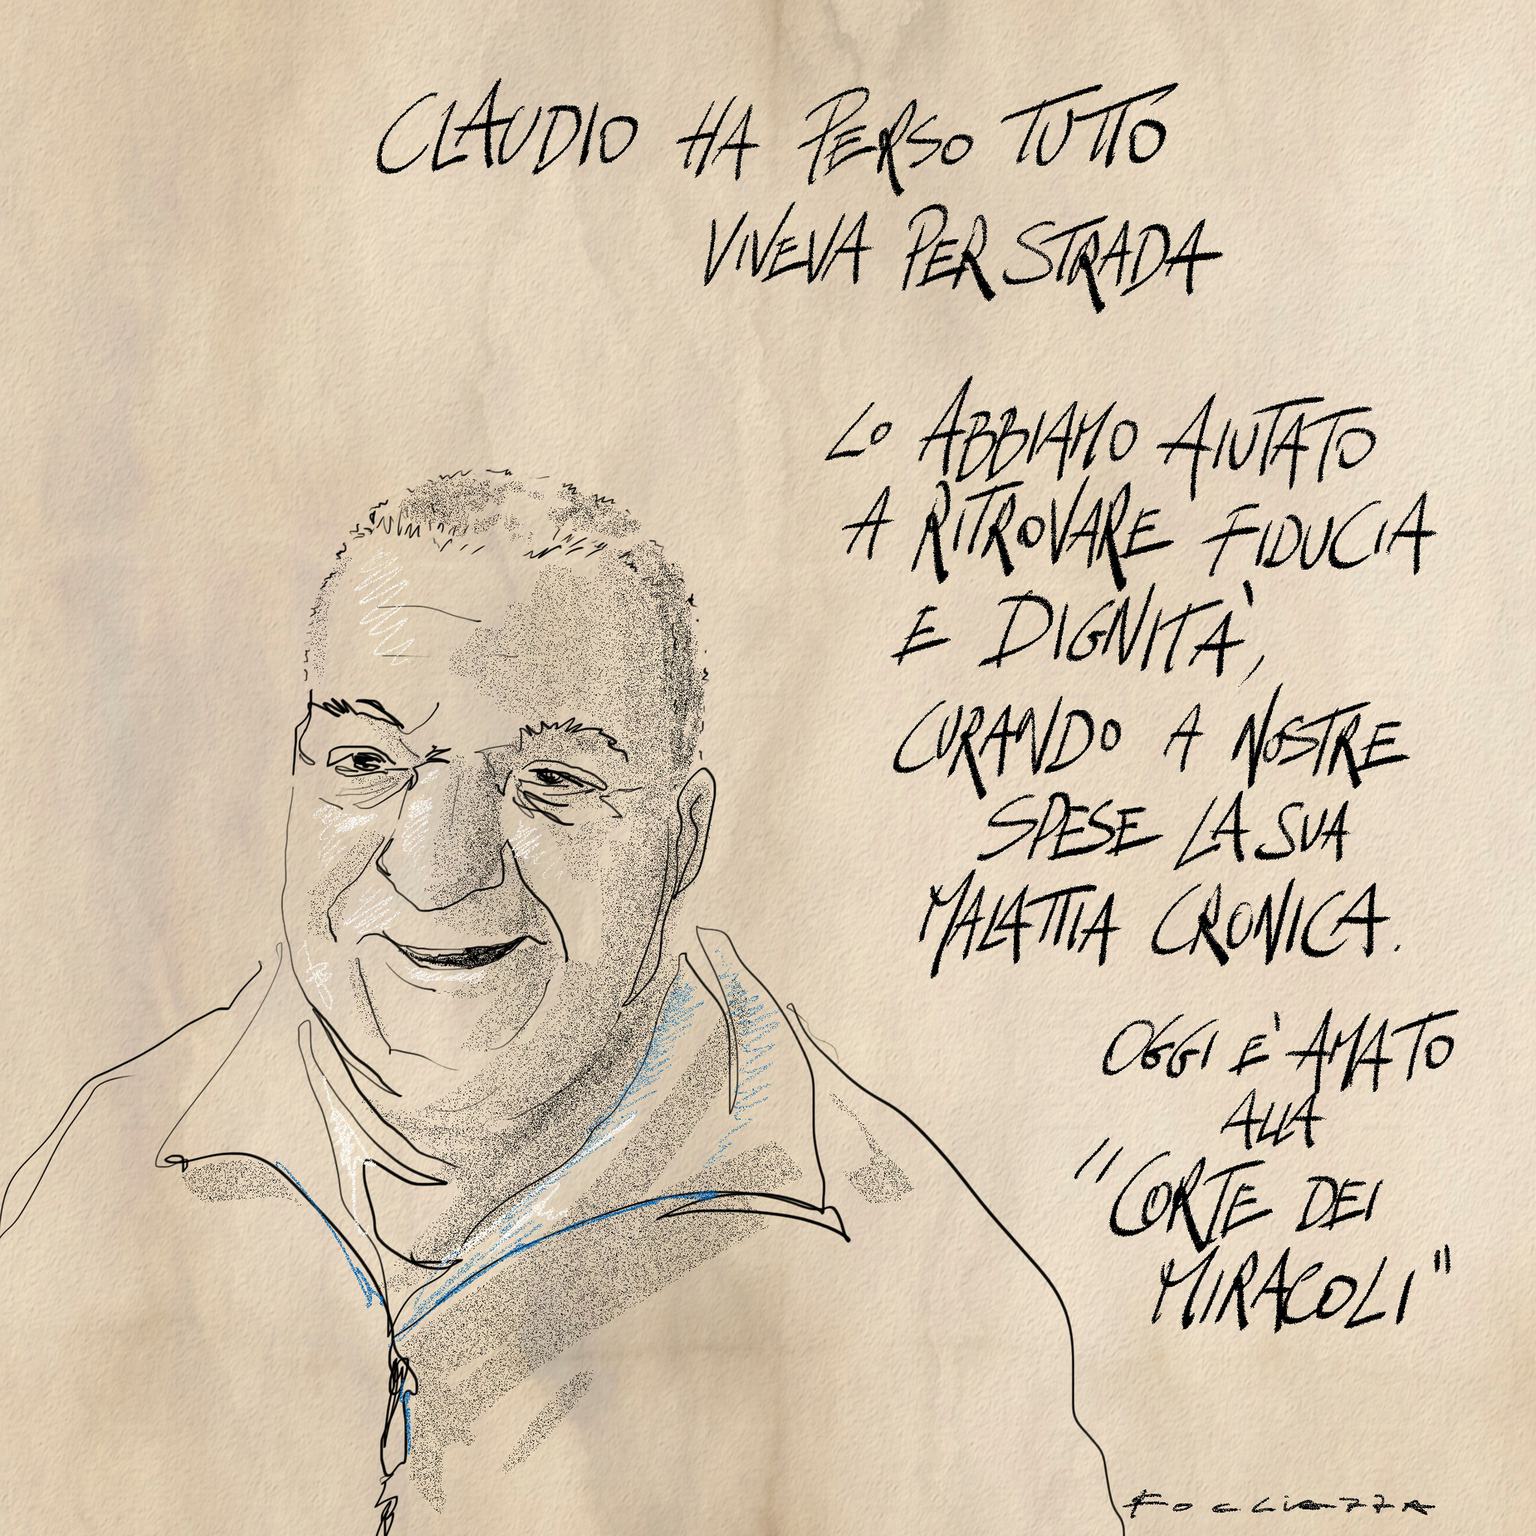 CLAUDIO HA PERSO TUTTO
VIVEVA PER STRADA
LO ABBIAMO AIUTATO
A RITROVARE FIDUCIA
E DIGNITÀ,
CURANDO A NOSTRE
SPESE LA SUA
MALATTIA CRONICA.
OGGI E' AMATO
ALLA
"CORTE DEI
MIRACOLI"
FOGLIAZZA